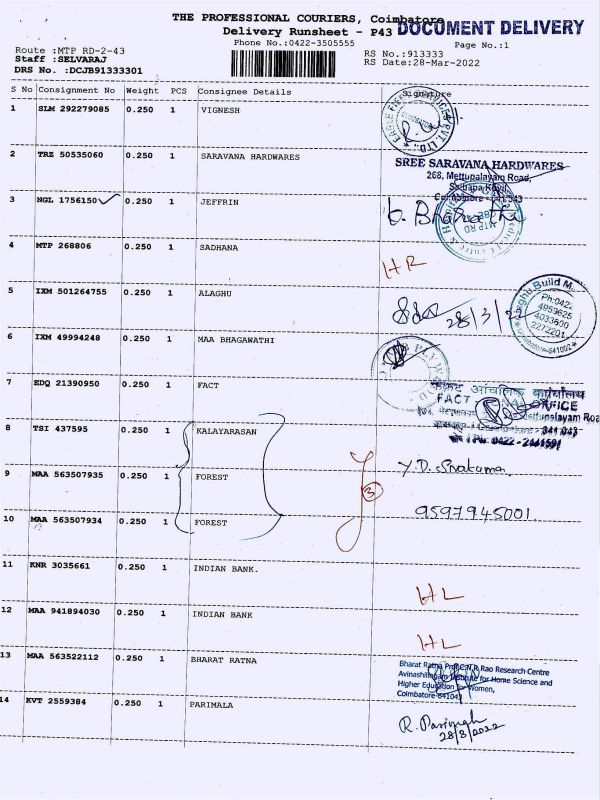 THE PROFESSIONAL COURIERS, Coimbatore
Delivery Runsheet - P43
DOCUMENT DELIVERY
Phone No.:0422-3505555
Page No.:1
Route :MTP RD-2-43
RS No.:913333
Staff :SELVARAJ
RS Date:28-Mar-2022
DRS No. :DCJB91333301
S No Consignment No Weight PCS Consignee Details Signature
1 SLM 292279085 0.250 1 VIGNESH
2 TRZ 50535060 0.250 1 SARAVANA HARDWARES
SREE SARAVANA HARDWARES
268, Mettupalayam Road,
3 NGL 1756150 0.250 1 JEFFRIN
4 MTP 268806 0.250 1 SADHANA
HR
5 IXM 501264755 0.250 1 ALAGHU
28/3/22
Ph:0422
2272201
6 IXM 49994248 0.250 1 MAA BHAGAWATHI
7 EDQ 21390950 0.250 1 FACT
FACT
OFFICE
8 TSI 437595 0.250 1 KALAYARASAN
9 MAA 563507935 0.250 1 FOREST
3
9597945001
10 MAA 563507934 0.250 1 FOREST
11 KNR 3035661 0.250 1 INDIAN BANK.
HL
12 MAA 941894030 0.250 1 INDIAN BANK
HL
13 MAA 563522112 0.250 1 BHARAT RATNA
Bharat Ratna Prof.C.N.R.Rao Research Centre
Avinashilingam Institute for Home Science and
Higher Education for Women,
Coimbatore-641043
14 KVT 2559384 0.250 1 PARIMALA
28/3/2022